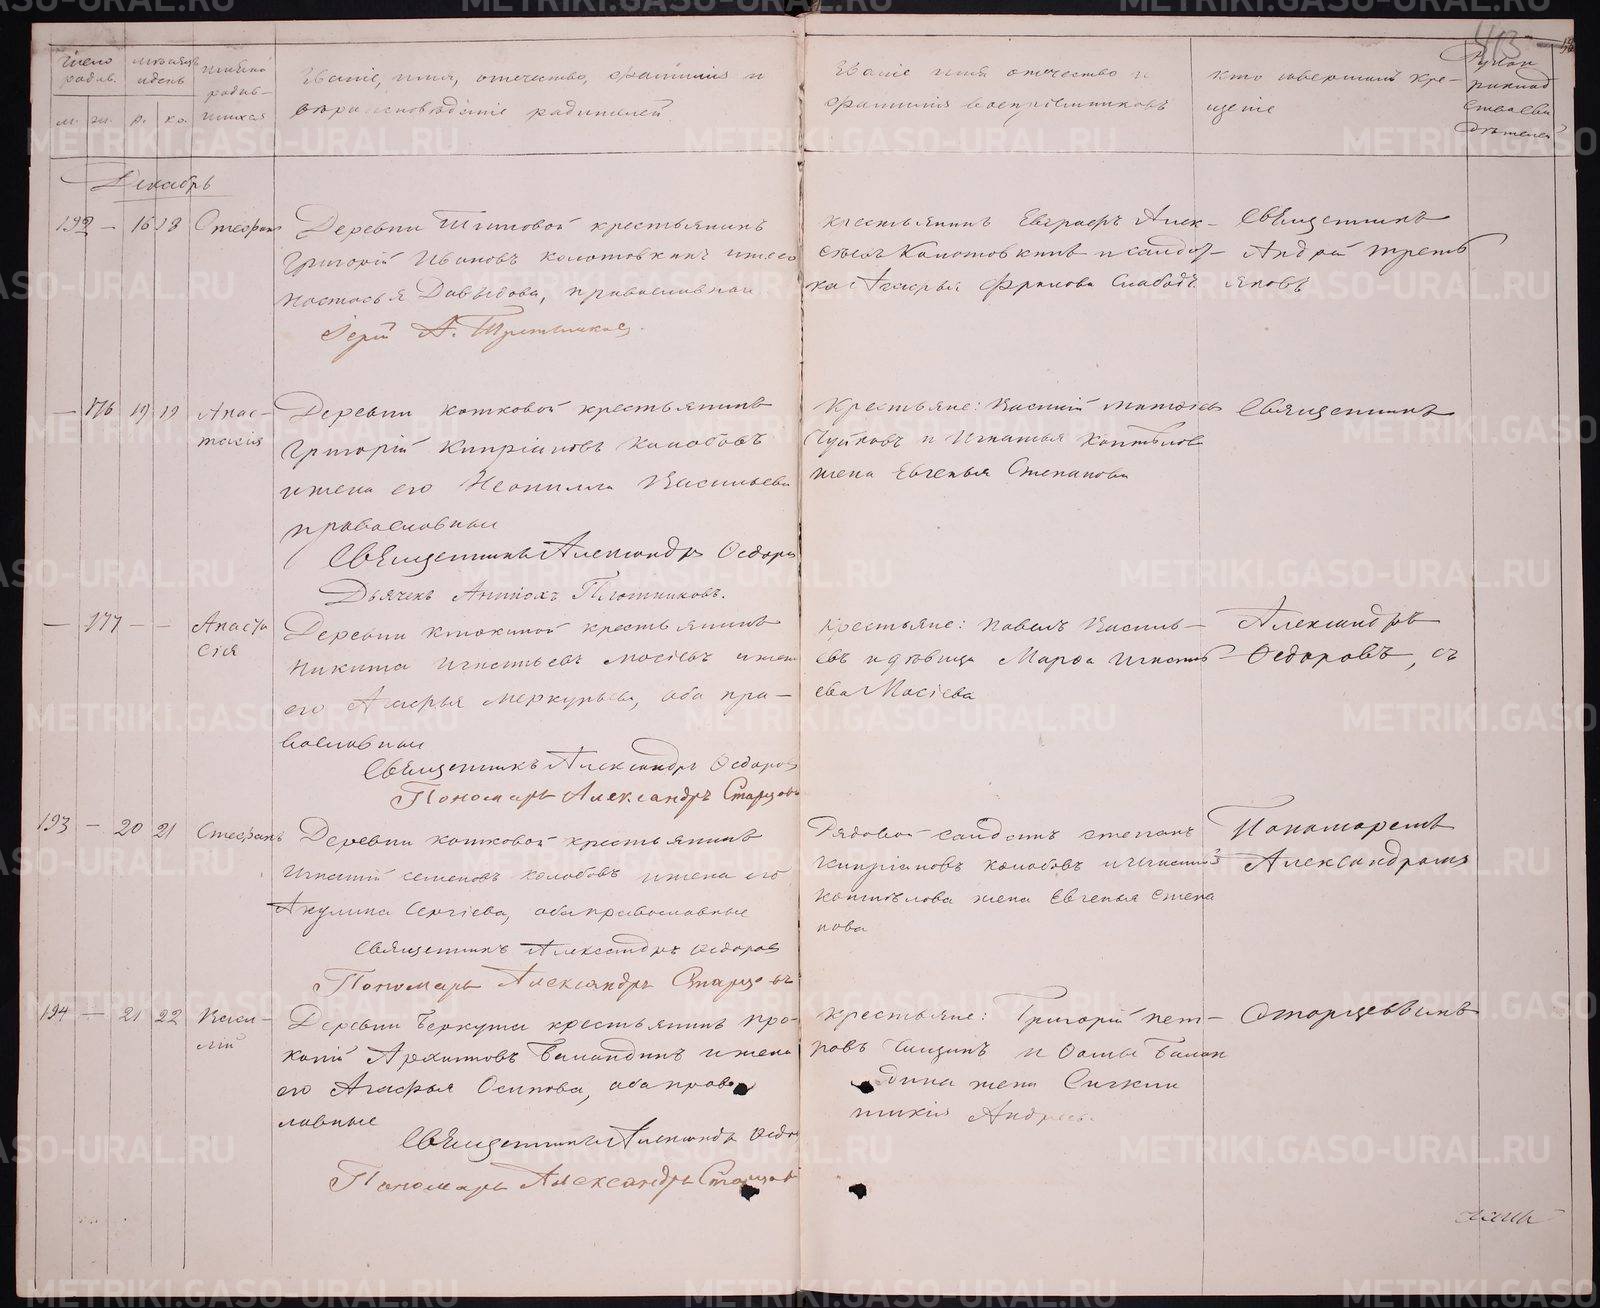 413
Число родив.
м. ж.
Мѣсяцъ и день
р. кр.
Имена родив-
шихся
Званіе, имя, отчество, фамилія и
вѣроисповѣданіе родителей.
Званіе имя отчество и
фамилія воспріемниковъ
Кто совершалъ кре-
щеніе
Декабрь
192 — 16 18 Стефанъ
Деревни крестьянинъ
Григорій Ивановъ Колотовкинъ и жена
Настасья Давыдова, православныи
Іерей А. Третьяковъ.
крестьянинъ Евграфъ Алек-
сѣевъ Колотовкинъ и солдат-
ка Агафья
Священникъ
Андрей Треть
яковъ
— 176 19 19 Анас-
тасія
Деревни Кошковой крестьянинъ
Григорій Кипріановъ Колобовъ
и жена его Неонилла Васильева
православныи
Священникъ Александръ Ѳедоровъ
Дьячекъ Плотниковъ.
Крестьяне: Василій
Чуйковъ и Игнатья Коптѣлова
жена Евгенья Степанова
Священникъ
— 177 — — Анаста
сія
Деревни крестьянинъ
Никита Игнатьевъ Мосіевъ и жена
его Агафья Меркурьева, оба пра-
вославныи
Священникъ Александръ Ѳедоровъ
Пономарь Александръ Старцовъ
Крестьяне: Павелъ Василь-
евъ и дѣвица Марѳа Игнать
ева Мосіева
Александръ
Ѳедоровъ, съ
193 — 20 21 Стефанъ
Деревни Кошковой крестьянинъ
Игнатій Семеновъ Колобовъ и жена его
Акулина Сергіева, оба православные
Священникъ Александръ Ѳедоровъ
Пономарь Александръ Старцовъ
Рядовой солдатъ Степанъ
Кипріановъ Колобовъ и Игнатія
Коптѣлова жена Евгенья Степа
нова
Пономаремъ
Александромъ
194 — 21 22 Васи-
лій
Деревни Беркута крестьянинъ Про-
копій Архиповъ Баландинъ и жена
его Агафья Осипова, оба право
лавные
Священникъ Александръ Ѳедо
Пономарь Александръ Старцовъ
Крестьяне: Григорій Пет-
ровъ и Ѳомы Балан
дина жена
Андреева
Старцевымъ